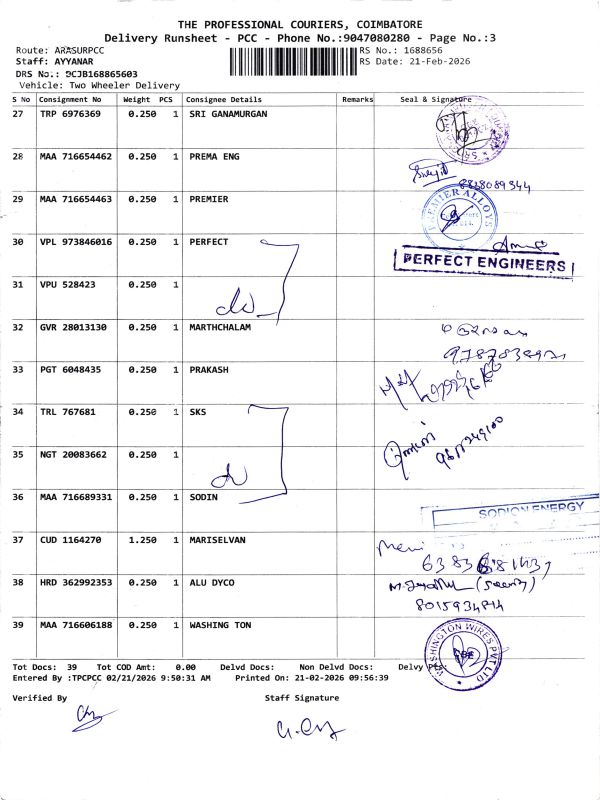 THE PROFESSIONAL COURIERS, COIMBATORE
Delivery Runsheet - PCC - Phone No.:9047080280 - Page No.:3
Route: ARASURPCC RS No.: 1688656
Staff: AYYANAR RS Date: 21-Feb-2026
DRS No.: DCJB168865603
Vehicle: Two Wheeler Delivery
S No Consignment No Weight PCS Consignee Details Remarks Seal & Signature
27 TRP 6976369 0.250 1 SRI GANAMURGAN
28 MAA 716654462 0.250 1 PREMA ENG
8828089344
29 MAA 716654463 0.250 1 PREMIER
PREMIER ALLOYS
30 VPL 973846016 0.250 1 PERFECT
PERFECT ENGINEERS
31 VPU 528423 0.250 1
32 GVR 28013130 0.250 1 MARTHCHALAM
33 PGT 6048435 0.250 1 PRAKASH
34 TRL 767681 0.250 1 SKS
35 NGT 20083662 0.250 1
36 MAA 716689331 0.250 1 SODIN
SODION ENERGY
37 CUD 1164270 1.250 1 MARISELVAN
Mari
38 HRD 362992353 0.250 1 ALU DYCO
8015934814
39 MAA 716606188 0.250 1 WASHING TON
WASHINGTON WIRES PVT LTD
Tot Docs: 39 Tot COD Amt: 0.00 Delvd Docs: Non Delvd Docs: Delvy
Entered By :TPCPCC 02/21/2026 9:50:31 AM Printed On: 21-02-2026 09:56:39
Verified By Staff Signature